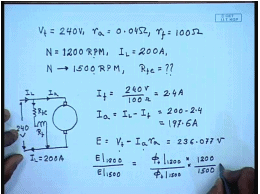 Vt = 240V, ra = 0.04Ω, rf = 100Ω
N = 1200 RPM, IL = 200A,
N → 1500 RPM, Rfe = ??
IL
Ia
If
Rf
240
IL = 200A
If = 240V / 100Ω = 2.4A
Ia = IL - If = 200 - 2.4
= 197.6A
E = Vt - Ia ra = 236.077V
E|1200 / E|1500 = ϕf|1200 / ϕf|1500 × 1200 / 1500